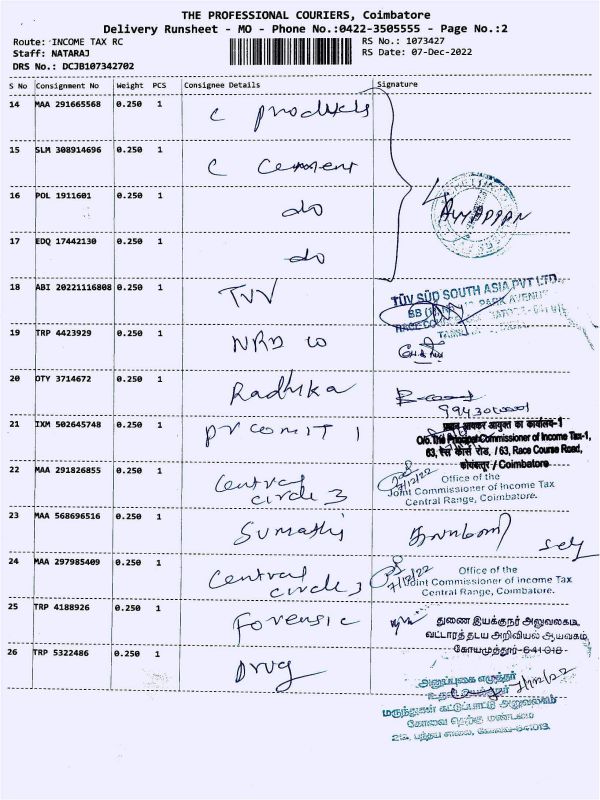 THE PROFESSIONAL COURIERS, Coimbatore
Delivery Runsheet - MO - Phone No.:0422-3505555 - Page No.:2
Route: INCOME TAX RC
Staff: NATARAJ
DRS No.: DCJB107342702
RS No.: 1073427
RS Date: 07-Dec-2022
S No Consignment No Weight PCS Consignee Details Signature
14 MAA 291665568 0.250 1 C products
15 SLM 308914696 0.250 1 C Cement
16 POL 1911601 0.250 1 do
AYYAPPAN
17 EDQ 17442130 0.250 1 do
18 ABI 20221116808 0.250 1 TUV
TÜV SÜD SOUTH ASIA PVT LTD
PARK AVENUE
19 TRP 4423929 0.250 1
20 OTY 3714672 0.250 1 Radhika
21 IXM 502645748 0.250 1 pr comIT 1
प्रधान आयकर आयुक्त का कार्यालय-1
O/o. The Principal Commissioner of Income Tax-1,
63, रेस कोर्स रोड, / 63, Race Course Road,
कोयंबत्तूर / Coimbatore
22 MAA 291826855 0.250 1 Central circle 3
7/12/22
Office of the
Joint Commissioner of Income Tax
Central Range, Coimbatore.
23 MAA 568696516 0.250 1 Sumathi
24 MAA 297985409 0.250 1 Central circle 3
7/12/22
Office of the
Joint Commissioner of Income Tax
Central Range, Coimbatore.
25 TRP 4188926 0.250 1 Forensic
துணை இயக்குநர் அலுவலகம்,
வட்டாரத் தடய அறிவியல் ஆய்வகம்,
கோயமுத்தூர்-641018
26 TRP 5322486 0.250 1 Drug
7/12/22
மருந்துகள் கட்டுப்பாட்டு அலுவலகம்
கோவை தெற்கு மண்டலம்